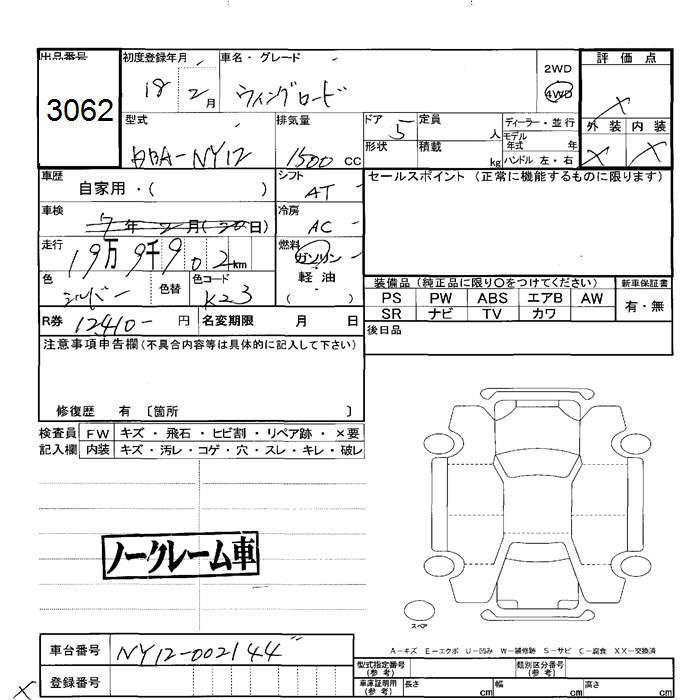 出品番号
3062
初度登録年月
18 2月
車名・グレード
ウィングロード
2WD
4WD
評価点
×
外装 内装
× ×
型式
DBA-NY12
排気量
1500 CC
ドア
5
定員
人
形状
積載
kg
ディーラー・並行
モデル年式 年
ハンドル 左・右
車歴
自家用・( )
シフト
AT
セールスポイント (正常に機能するものに限ります)
車検
7年2月(20日)
冷房
AC
走行
19万9千902km
燃料
ガソリン
軽・油
( )
色
シルバー
色替
色コード
K23
装備品 (純正品に限り〇をつけてください)
PS PW ABS エアB AW
SR ナビ TV カワ
新車保証書
有・無
R券 12410- 円
名変期限 月 日
後日品
注意事項申告欄(不具合内容等は具体的に記入して下さい)
修復歴 有 〔箇所 〕
検査員記入欄
FW キズ・飛石・ヒビ割・リペア跡・×要
内装 キズ・汚レ・コゲ・穴・スレ・キレ・破レ
ノークレーム車
スペア
A-キズ E-エクボ U-凹み W-補修跡 S-サビ C-腐食 XX-交換済
車台番号 NY12-002144
登録番号
型式指定番号(参考)
類別区分番号(参考)
車庫証明用(参考)
長さ cm 幅 cm 高さ cm
×